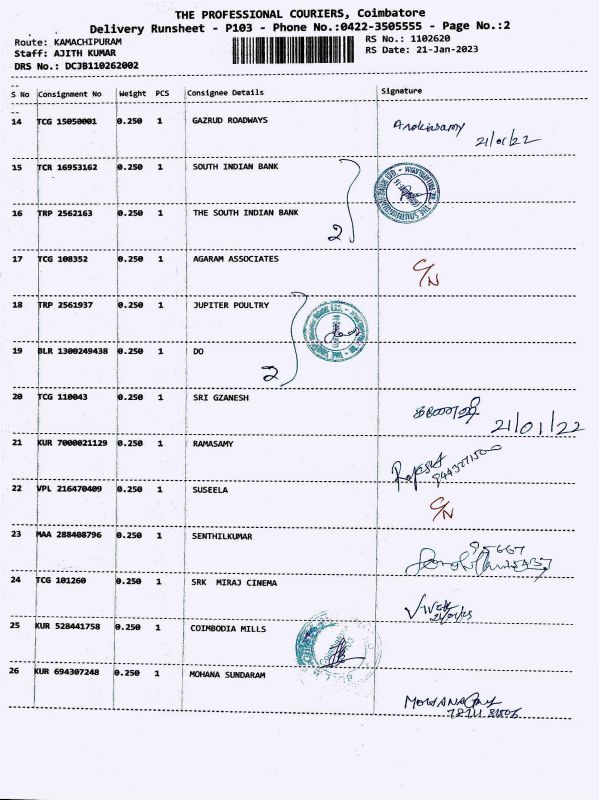 THE PROFESSIONAL COURIERS, Coimbatore
Delivery Runsheet - P103 - Phone No.:0422-3505555 - Page No.:2
Route: KAMACHIPURAM
Staff: AJITH KUMAR
DRS No.: DCJB110262002
RS No.: 1102620
RS Date: 21-Jan-2023
S No Consignment No Weight PCS Consignee Details Signature
14 TCG 15050001 0.250 1 GAZRUD ROADWAYS
Arokiasamy
21/01/22
15 TCR 16953162 0.250 1 SOUTH INDIAN BANK
16 TRP 2562163 0.250 1 THE SOUTH INDIAN BANK
2
17 TCG 108352 0.250 1 AGARAM ASSOCIATES
C/N
18 TRP 2561937 0.250 1 JUPITER POULTRY
19 BLR 1300249438 0.250 1 DO
2
20 TCG 110043 0.250 1 SRI GZANESH
21/01/22
21 KUR 7000021129 0.250 1 RAMASAMY
22 VPL 216470409 0.250 1 SUSEELA
C/N
23 MAA 288408796 0.250 1 SENTHILKUMAR
24 TCG 101260 0.250 1 SRK MIRAJ CINEMA
25 KUR 528441758 0.250 1 COIMBODIA MILLS
26 KUR 694307248 0.250 1 MOHANA SUNDARAM